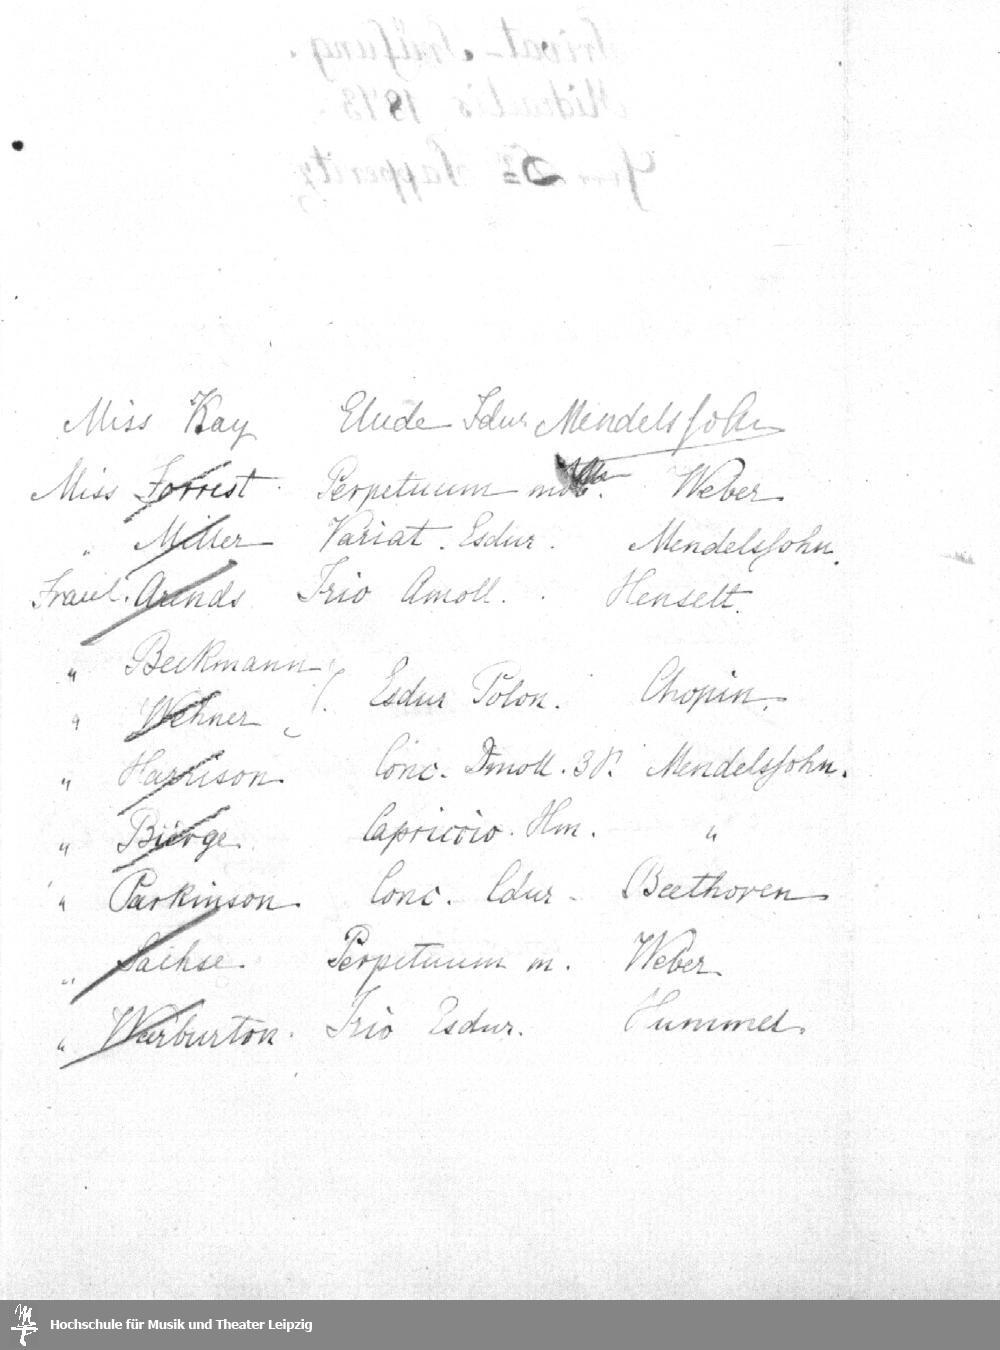 Privat-Prüfung.
Michaelis 1873.
Dr Papperitz
Miss Kay Etude Fdur Mendelssohn
Miss Forrest. Perpetuum mob. Weber.
" Miller Variat. Esdur. Mendelssohn.
Fräul. Arends Trio Amoll. Henselt.
" Beckmann
" Wehner Esdur Polon. Chopin.
" Harrison. Conc. Dmoll. 3 P. Mendelssohn.
" Bürge. Capriccio. Hm. "
" Parkinson. Conc. Cdur - Beethoven
" Sachse. Perpetuum m. Weber.
" Warburton. Trio Esdur. Hummel.
Hochschule für Musik und Theater Leipzig